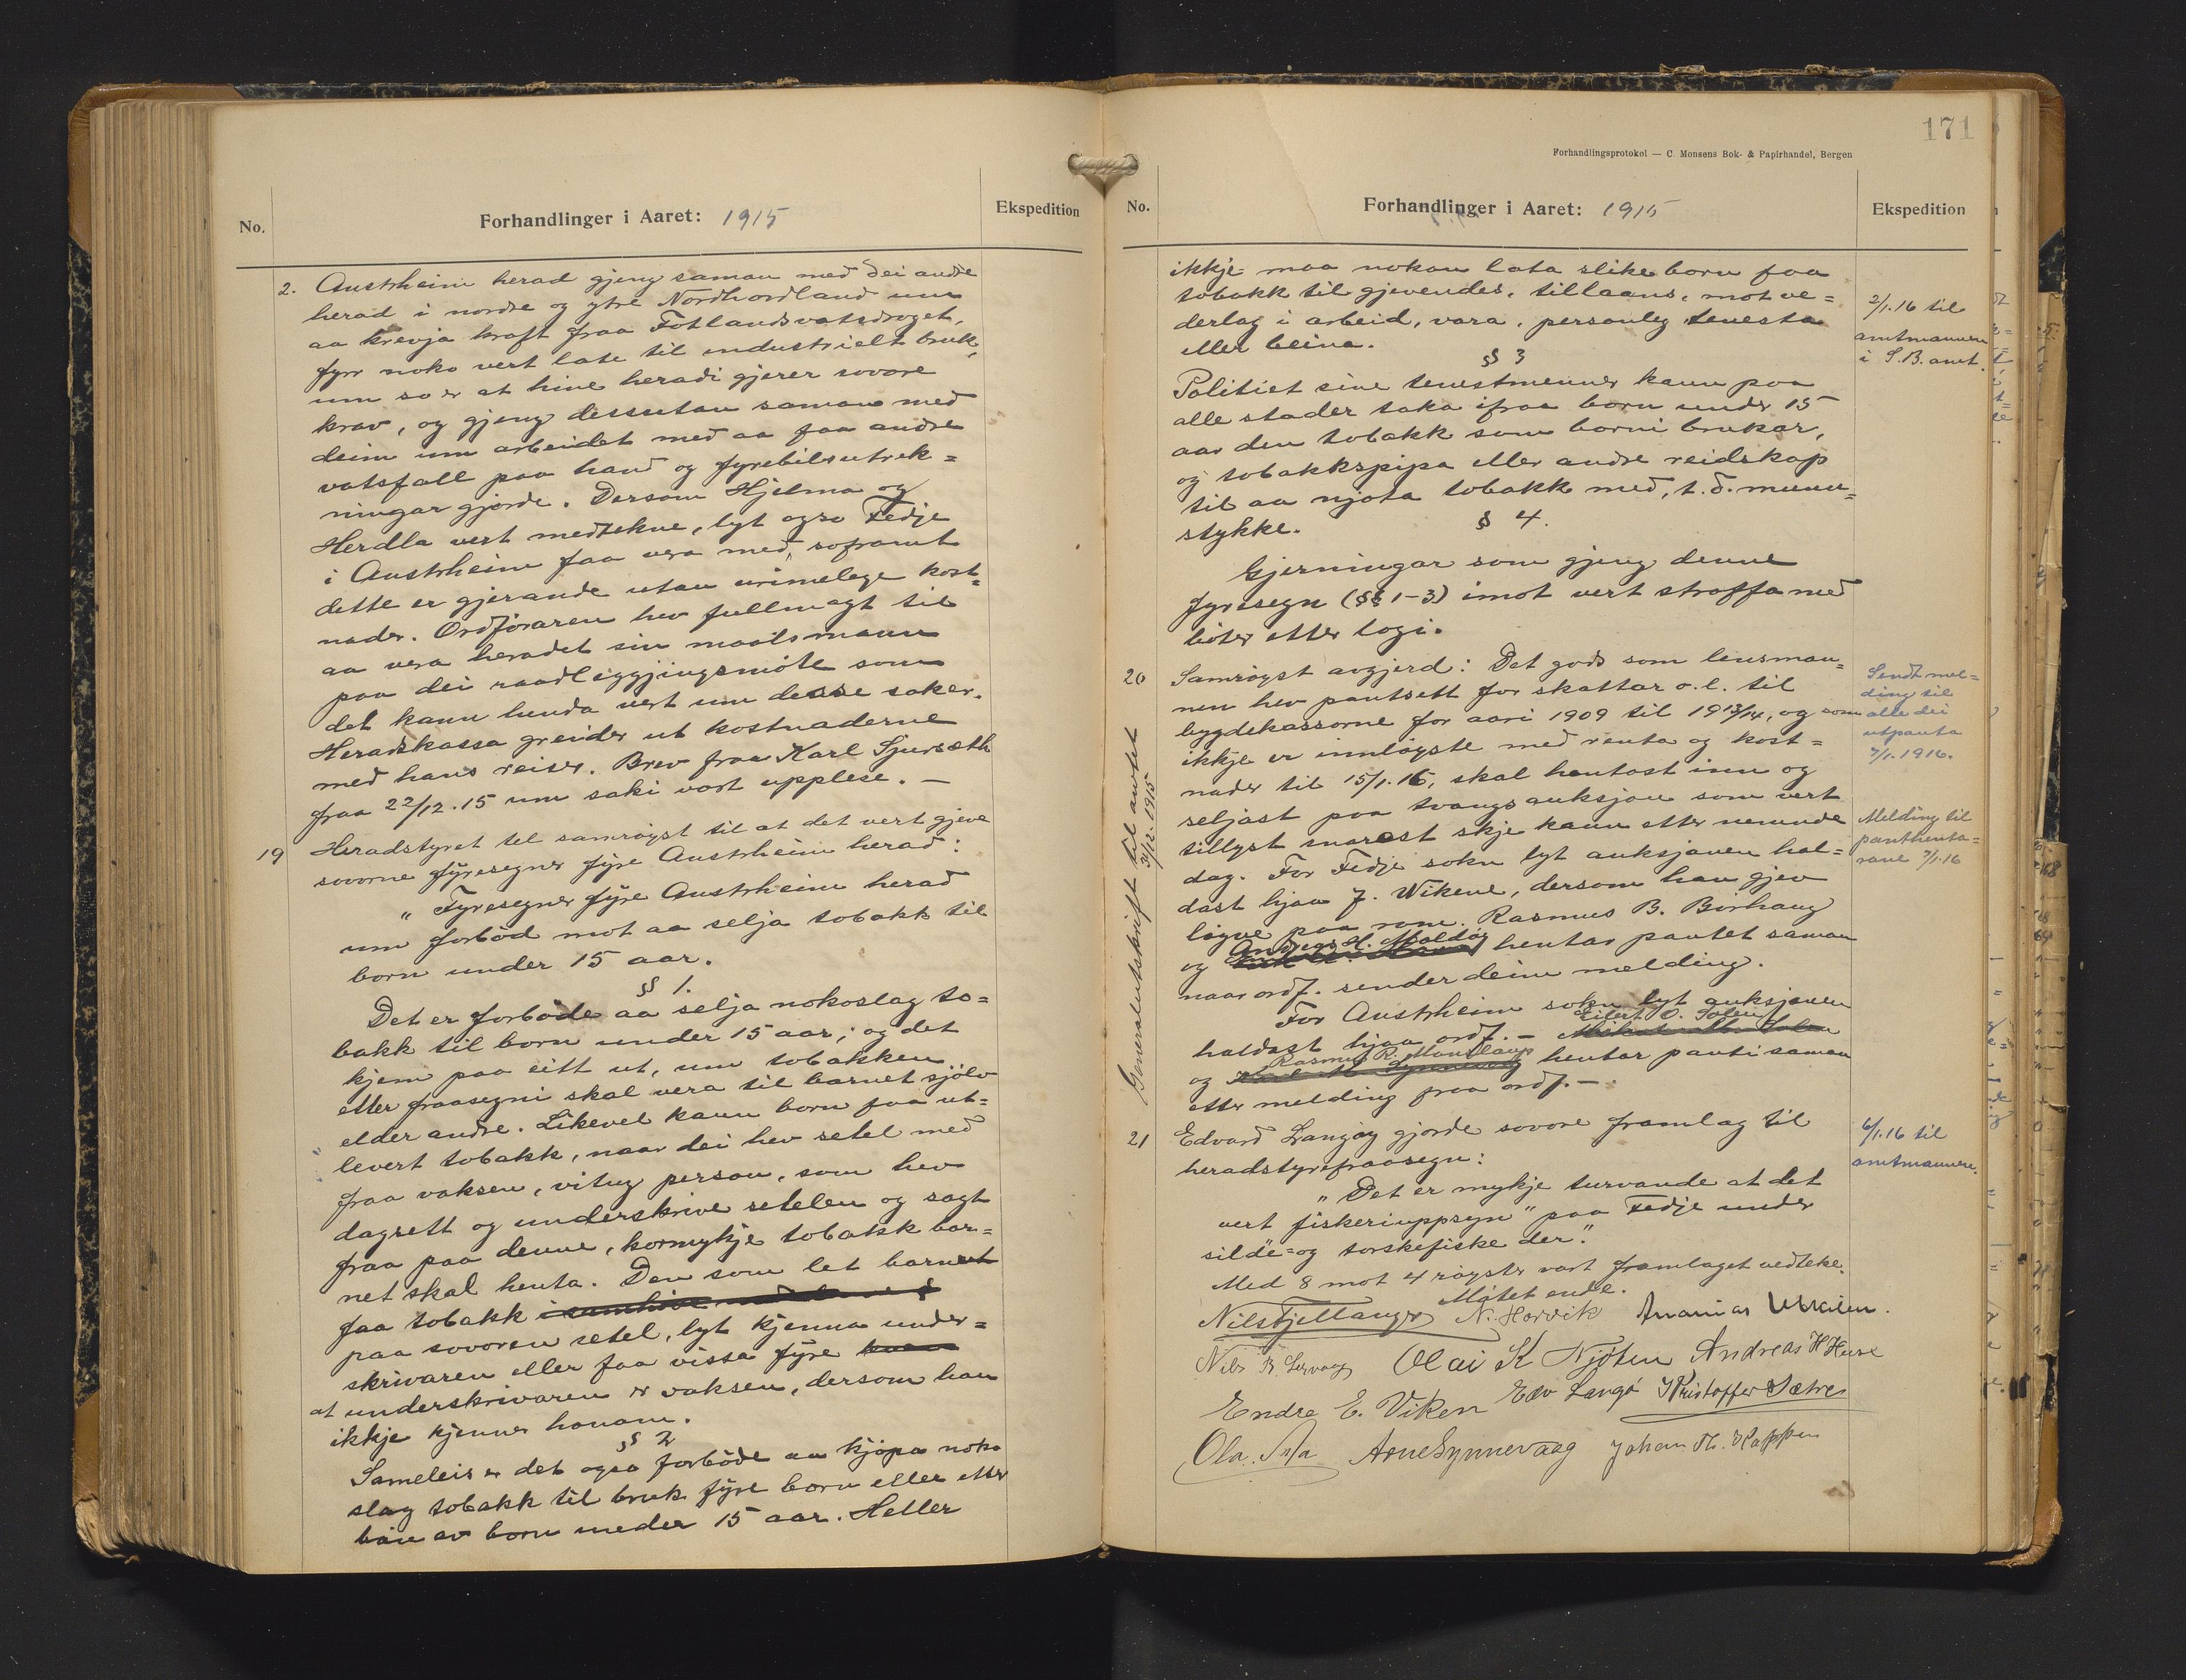 No.
Forhandlinger i Aaret: 1915
Ekspedition
2. Austrheim herad gjeng saman med dei andre
herad i nordre og ytre Nordhordland um
aa krevja kraft fraa Fotlandsvatsdroget,
fyrr noko vert late til industrielt bruk,
um so er at hine heradi gjerer sovore
krav, og gjeng dessutan saman med
deim um arbeidet med aa faa andre
vatsfall paa hand og fyrebilsutrek=
ningar gjorde. Dersom Hjelma og
Herdla vert medtekne, lyt ogso Fedje
i Austrheim faa vera med, soframt
dette er gjerande utan urimelege kost=
nader. Ordføraren hev fullmagt til
aa vera heradet sin maalsmann
paa dei raadleggjingsmøte som
det kann henda vert um desse saker.
Heradskassa greider ut kostnaderne
med hans reiser. Brev fraa Karl Sjursæth
fraa 22/12.15 um saki vart upplese. —
19 Heradstyret tel samrøyst til at det vert gjeve
sovorne fyresegner fyre Austrheim herad:
" Fyresegner fyre Austrheim herad
um forbod mot aa selja tobakk til
born under 15 aar.
§ 1.
Det er forbode aa selja nokoslag to=
bakk til born under 15 aar; og det
kjem paa eitt ut, um tobakken
etter fraasegni skal vera til barnet sjølv
elder andre. Likevel kann born faa ut=
levert tobakk, naar dei hev setel med
fraa vaksen, vitug person, som hev
dagsett og underskrive setelen og sagt
fraa paa denne, kormykje tobakk bar=
net skal henta. Den som let barnet
faa tobakk
paa sovoren setel, lyt kjenna under=
skrivaren eller faa vissa fyre
at underskrivaren er vaksen, dersom han
ikkje kjenner honom.
§ 2
Sameleis er det ogso forbode aa kjøpa noko
slag tobakk til bruk fyre born eller etter
bøn av born under 15 aar. Heller
171
Forhandlingsprotokol — C. Monsens Bok- & Papirhandel, Bergen
No.
Forhandlinger i Aaret: 1915
Ekspedition
ikkje maa nokon lata slike born faa
tobakk til gjevendes, tillaans, mot ve=
derlag i arbeid, vara, personleg tenesta
eller beina.
2/1.16 til
amtmannen
i S.B. amt.
§ 3
Politiet sine tenestmenner kann paa
alle stader taka ifraa born under 15
aar den tobakk som borni brukar,
og tobakkspipa eller andre reidskap
til aa njota tobakk med, t.d. munn=
stykke.
§ 4.
Gjerningar som gjeng denne
fyresegn (§§ 1-3) imot vert straffa med
bøter etter logi.
20 Samrøyst avgjerd: Det gods som lensman=
nen hev pantsett for skattar o.l. til
bygdekassorne for aari 1909 til 1913/14, og som
ikkje er innløyste med renta og kost=
nader til 15/1.16, skal hentast inn og
seljast paa tvangsauksjon som vert
tillyst snarast skje kann etter nemnde
dag. For Fedje sokn lyt auksjonen hal=
dast hjaa J. Wikene, dersom han gjev
løyve paa rom. Rasmus B. Borhaug
og Andreas H. Moldøy hentar pantet saman
naar ordf. sender deim melding.
For Austrheim sokn lyt auksjonen
haldast hjaa ordf. — Eilert O. Solem
og Rasmus R. Mongstaup hentar panti saman
etter melding fraa ordf. —
Sendt mel=
ding til
alle dei
utpanta
7/1.1916.
Melding til
panthenta=
rane 7/1.16
Generalutskrift til amtet
31/12.1915
21 Edvard Langøy gjorde sovore framlag til
heradstyrefraasegn:
6/1.16 til
amtmannen.
" Det er mykje turvande at det
vert fiskeriuppsyn" paa Fedje under
silde= og torskefiske der."
Med 8 mot 4 røyster vart framlaget vedteke.
Møtet ende.
Nils Fjellanger N. Horvik Ananias Utkilen.
Nils B. Lervaag Olai K Njøten Andreas H Huse
Endre E. Viken Edv Langø Kristoffer Sætre
Ola Aa Arne Synnevaag Johan Th. Kappen